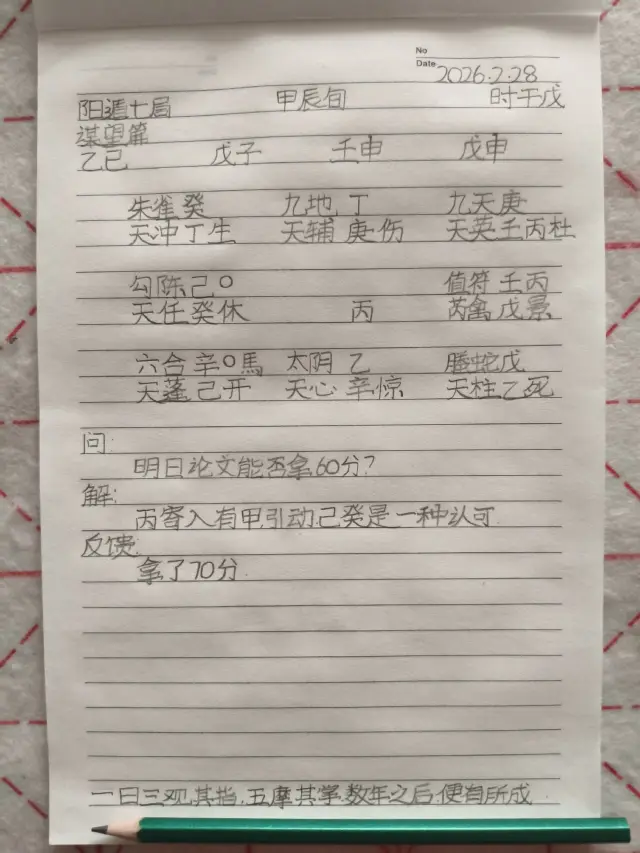 No
Date 2026.2.28
阳遁七局 甲辰旬 时干戊
谋望篇
乙巳 戊子 壬申 戊申
朱雀癸 九地丁 九天庚
天冲丁生 天辅庚伤 天英壬丙杜
勾陈己○ 值符壬丙
天任癸休 丙 芮禽戊景
六合辛○馬 太阴乙 螣蛇戊
天蓬己开 天心辛惊 天柱乙死
问:
明日论文能否拿60分?
解:
丙寄入有甲引动,己癸是一种认可
反馈:
拿了70分
一日三观其指,五摩其掌,数年之后,便有所成